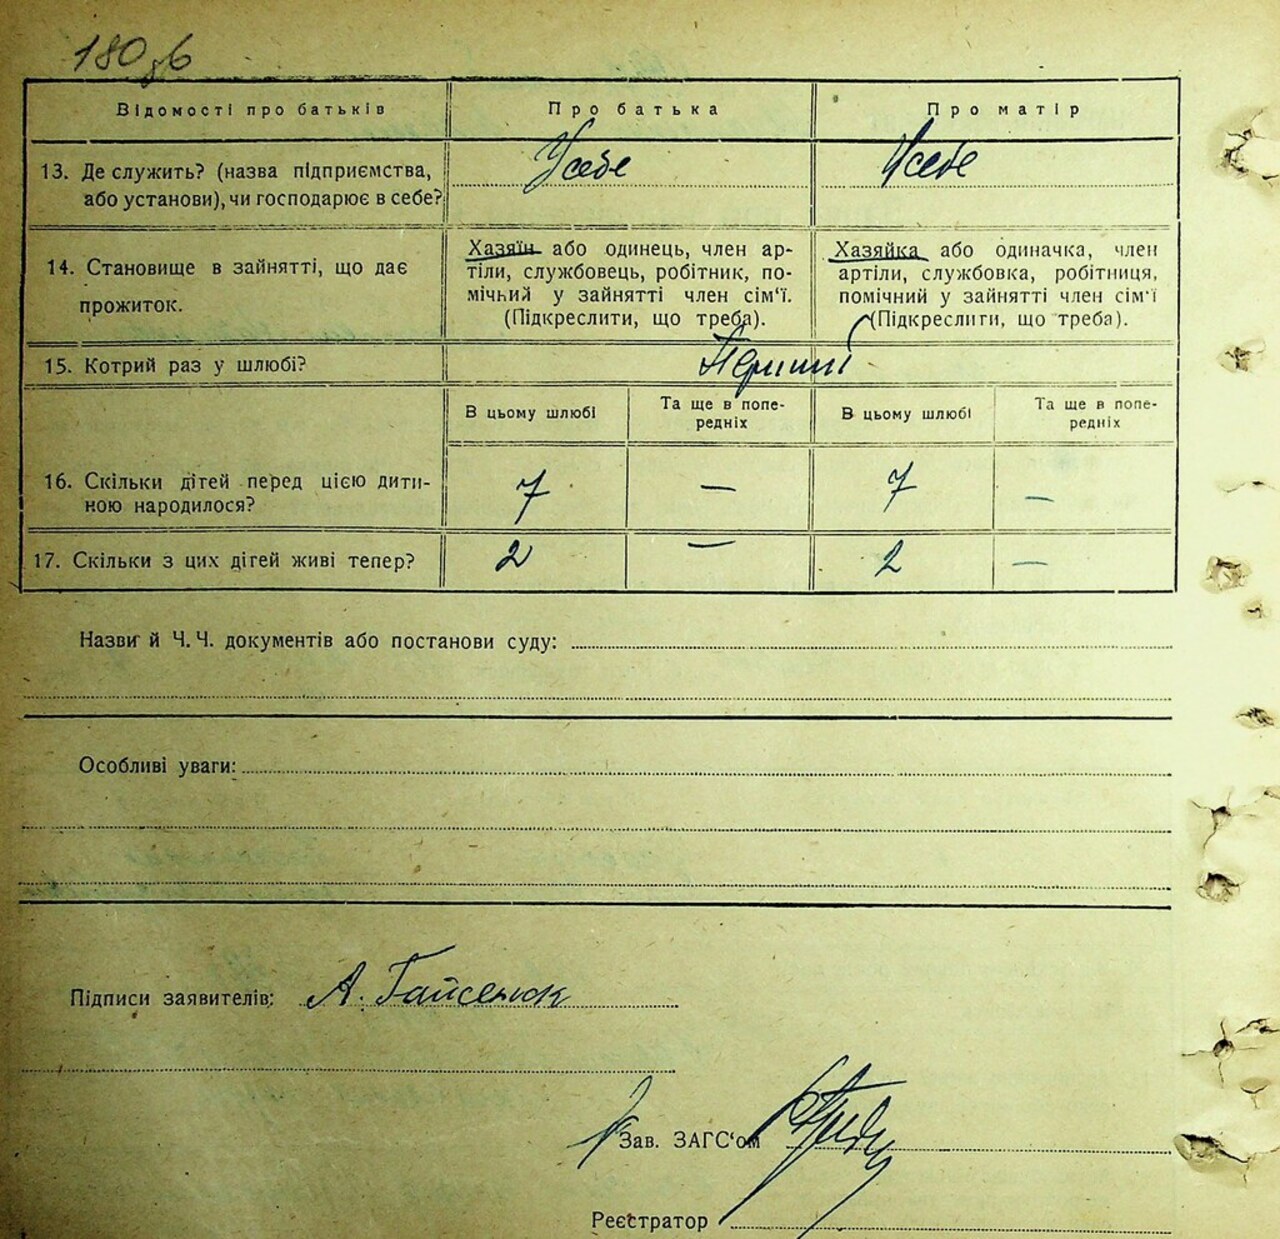 180 зв
Відомості про батьків
Про батька
Про матір
13. Де служить? (назва підприємства,
або установи), чи господарює в себе?
У себе
У себе
14. Становище в зайнятті, що дає
прожиток.
Хазяїн або одинець, член ар-
тіли, службовець, робітник, по-
мічний у зайнятті член сім'ї.
(Підкреслити, що треба).
Хазяйка або одиначка, член
артіли, службовка, робітниця,
помічний у зайнятті член сім'ї
(Підкреслити, що треба).
15. Котрий раз у шлюбі?
Перший
В цьому шлюбі
Та ще в попе-
редніх
В цьому шлюбі
Та ще в попе-
редніх
16. Скільки дітей перед цією дити-
ною народилося?
7
—
7
—
17. Скільки з цих дітей живі тепер?
2
—
2
—
Назви й Ч.Ч. документів або постанови суду:
Особливі уваги:
Підписи заявителів: А. Гайсенюк
Зав. ЗАГС'ом
Реєстратор